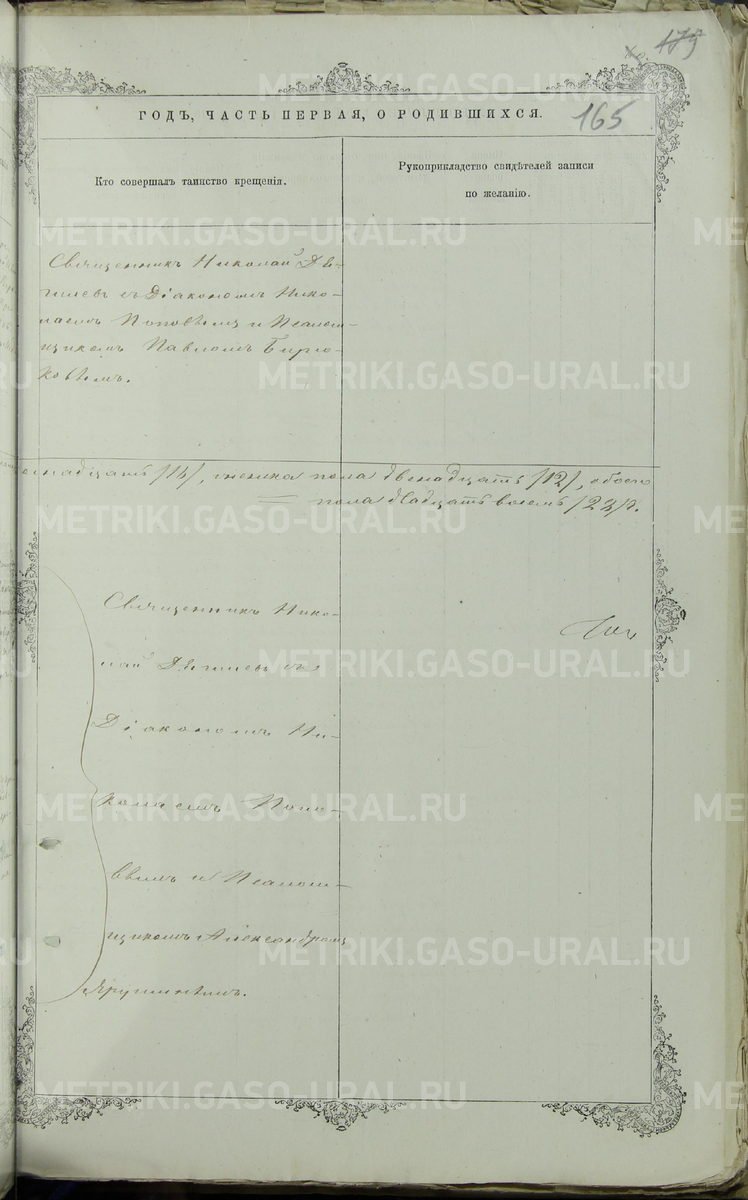 179
165
ГОДЪ, ЧАСТЬ ПЕРВАЯ, О РОДИВШИХСЯ.
Кто совершалъ таинство крещенія.
Рукоприкладство свидѣтелей записи
по желанію.
Священникъ Николай
съ Діакономъ Нико-
лаемъ Поповымъ и Псаломъ-
щикомъ Павломъ Бирю-
ковымъ.
женска пола двѣнадцать /12/, обоего
пола двадцать восемь /28/.
Священникъ Нико-
лай съ
Діакономъ Ни-
колаемъ Попо-
вымъ и Псаломъ-
щикомъ Александромъ
METRIKI.GASO-URAL.RU